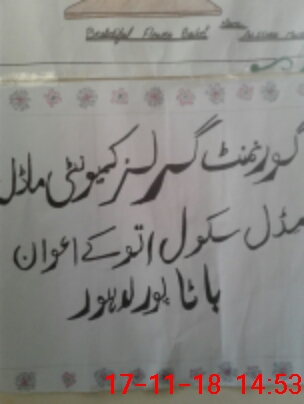 Beautiful Flower Basket
گورنمنٹ گرلز کمیونٹی ماڈل
مڈل سکول اتوکے اعوان
باٹا پور لاہور
17-11-18 14:53